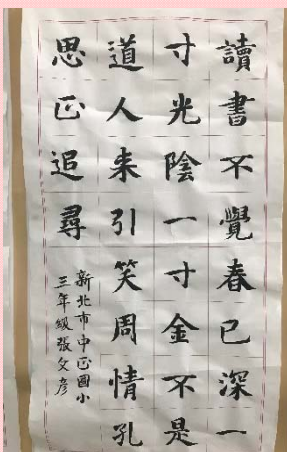 讀書不覺春已深一
寸光陰一寸金不是
道人来引笑周情孔
思正追尋
新北市中正國小
三年級張文彥